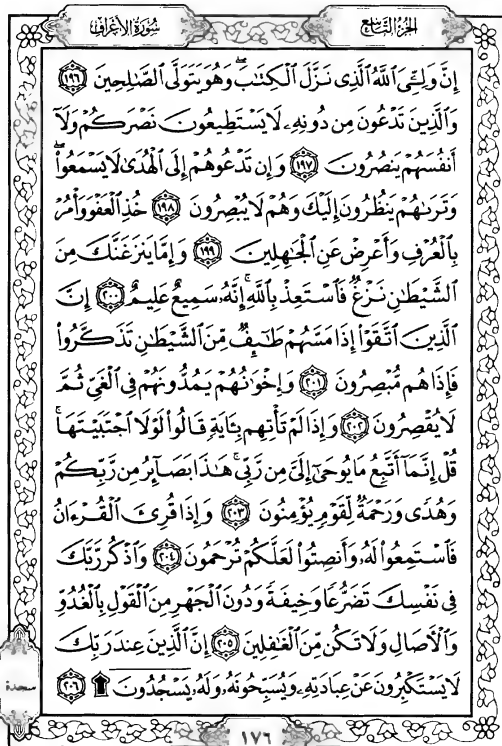 الجزء التاسع
سورة الأعراف
إِنَّ وَلِـِّۧيَ ٱللَّهُ ٱلَّذِي نَزَّلَ ٱلۡكِتَٰبَۖ وَهُوَ يَتَوَلَّى ٱلصَّٰلِحِينَ ١٩٦
وَٱلَّذِينَ تَدۡعُونَ مِن دُونِهِۦ لَا يَسۡتَطِيعُونَ نَصۡرَكُمۡ وَلَآ
أَنفُسَهُمۡ يَنصُرُونَ ١٩٧ وَإِن تَدۡعُوهُمۡ إِلَى ٱلۡهُدَىٰ لَا يَسۡمَعُواْۖ
وَتَرَىٰهُمۡ يَنظُرُونَ إِلَيۡكَ وَهُمۡ لَا يُبۡصِرُونَ ١٩٨ خُذِ ٱلۡعَفۡوَ وَأۡمُرۡ
بِٱلۡعُرۡفِ وَأَعۡرِضۡ عَنِ ٱلۡجَٰهِلِينَ ١٩٩ وَإِمَّا يَنزَغَنَّكَ مِنَ
ٱلشَّيۡطَٰنِ نَزۡغٞ فَٱسۡتَعِذۡ بِٱللَّهِۚ إِنَّهُۥ سَمِيعٌ عَلِيمٌ ٢٠٠ إِنَّ
ٱلَّذِينَ ٱتَّقَوۡاْ إِذَا مَسَّهُمۡ طَٰٓئِفٞ مِّنَ ٱلشَّيۡطَٰنِ تَذَكَّرُواْ
فَإِذَا هُم مُّبۡصِرُونَ ٢٠١ وَإِخۡوَٰنُهُمۡ يَمُدُّونَهُمۡ فِي ٱلۡغَيِّ ثُمَّ
لَا يُقۡصِرُونَ ٢٠٢ وَإِذَا لَمۡ تَأۡتِهِم بِـَٔايَةٖ قَالُواْ لَوۡلَا ٱجۡتَبَيۡتَهَاۚ
قُلۡ إِنَّمَآ أَتَّبِعُ مَا يُوحَىٰٓ إِلَيَّ مِن رَّبِّيۚ هَٰذَا بَصَآئِرُ مِن رَّبِّكُمۡ
وَهُدٗى وَرَحۡمَةٞ لِّقَوۡمٖ يُؤۡمِنُونَ ٢٠٣ وَإِذَا قُرِئَ ٱلۡقُرۡءَانُ
فَٱسۡتَمِعُواْ لَهُۥ وَأَنصِتُواْ لَعَلَّكُمۡ تُرۡحَمُونَ ٢٠٤ وَٱذۡكُر رَّبَّكَ
فِي نَفۡسِكَ تَضَرُّعٗا وَخِيفَةٗ وَدُونَ ٱلۡجَهۡرِ مِنَ ٱلۡقَوۡلِ بِٱلۡغُدُوِّ
وَٱلۡأٓصَالِ وَلَا تَكُن مِّنَ ٱلۡغَٰفِلِينَ ٢٠٥ إِنَّ ٱلَّذِينَ عِندَ رَبِّكَ
لَا يَسۡتَكۡبِرُونَ عَنۡ عِبَادَتِهِۦ وَيُسَبِّحُونَهُۥ وَلَهُۥ يَسۡجُدُونَۤ ۩ ٢٠٦
سجدة
١٧٦